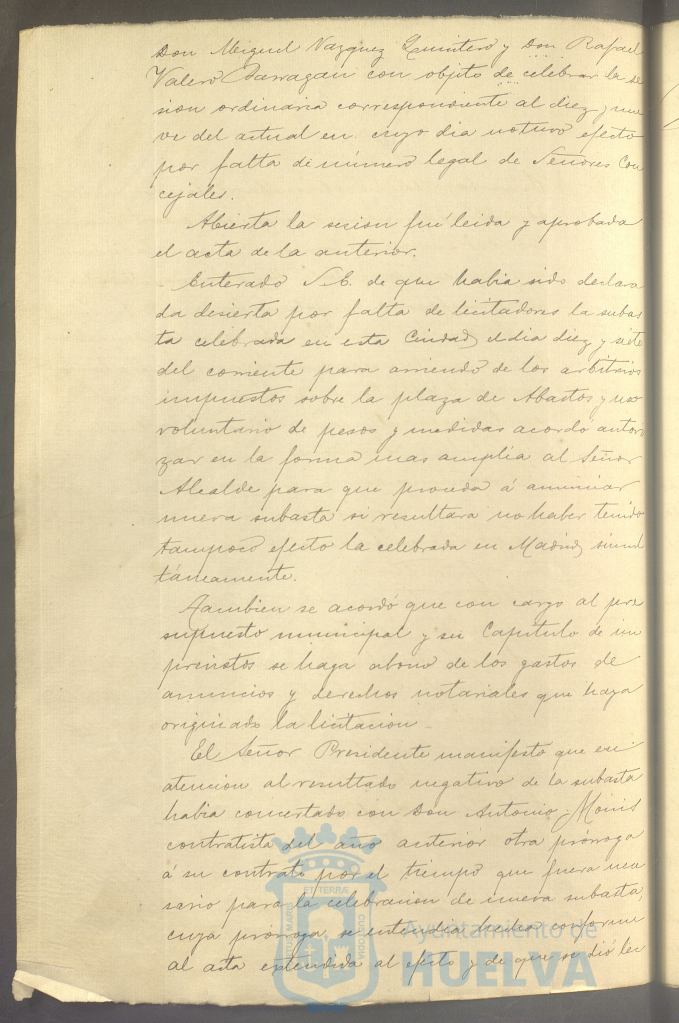 Don Miguel Vazquez Quintero y Don Rafael
Valero Barragan con objeto de celebrar la se
sion ordinaria correspondiente al diez y nue
ve del actual en cuyo dia no tuvo efecto
por falta de número legal de Señores Con
cejales.
Abierta la sesion fué leida y aprobada
el acta de la anterior.
Enterado S.E. de que habia sido declara
da desierta por falta de licitadores la subas
ta celebrada en esta Ciudad el dia diez y siete
del corriente para arriendo de los arbitrios
impuestos sobre la plaza de Abastos y uso
voluntario de pesos y medidas acordó autori
zar en la forma mas amplia al Señor
Alcalde para que proceda á anunciar
nueva subasta si resultara no haber tenido
tampoco efecto la celebrada en Madrid simul
táneamente.
Tambien se acordó que con cargo al pre
supuesto municipal y su Capitulo de im
previstos se haga abono de los gastos de
anuncios y derechos notariales que haya
originado la licitacion
El Señor Presidente manifestó que en
atencion al resultado negativo de la subasta
habia concertado con Don Antonio
contratista del año anterior otra prórroga
á su contrato por el tiempo que fuera nece
sario para la celebracion de nueva subasta,
cuya prórroga se entendia hecha conforme
al acta estendida al efecto y de que se dió lec
Ayuntamiento de
HUELVA